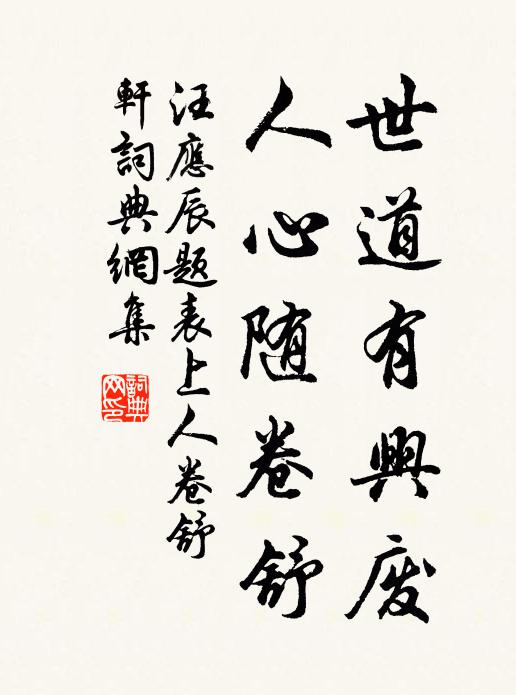 世道有興廢
人心随卷舒
汪應辰題表上人卷舒
軒詞典網集
詞典網印